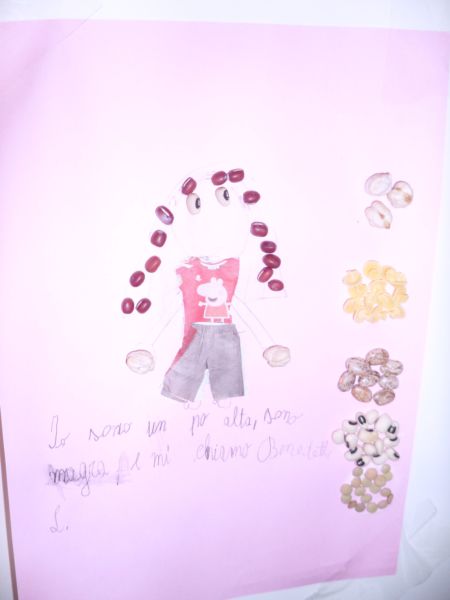 Io sono un po alta, sono
magra, e mi chiamo Benedetta
L.